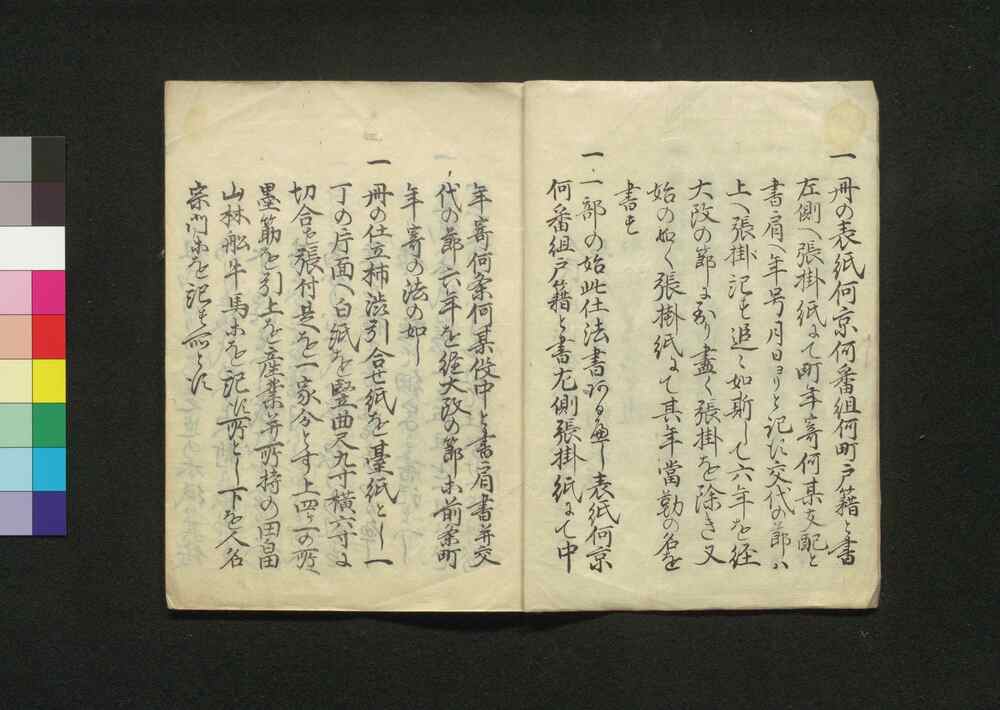 一 冊の表紙何京何番組何町戸籍と書
左側へ張掛紙にて町年寄何某支配と
書肩へ年号月日ヨリと記す交代の節ハ
上へ張掛記も追々如斯して六年を経
大改の節に至り盡く張掛を除き又
始の如く張掛紙にて其年當勤の名を
書也
一 一部の始此仕法書有る可し表紙何京
何番組戸籍と書左側張掛紙にて中
年寄何条何某役中と書肩書并交
代の節六年を経大改の節ホ前条町
年寄の法の如し
一 冊の仕立柿渋引合せ紙を臺紙とし一
丁の片面へ白紙を竪曲尺九寸横六寸に
切合を張付是を一家分とす上四ヶ一の所へ
墨筋を引上を産業并所持の田畠
山林舩牛馬ホを記す所とし下を人名
宗門ホを記す所とす